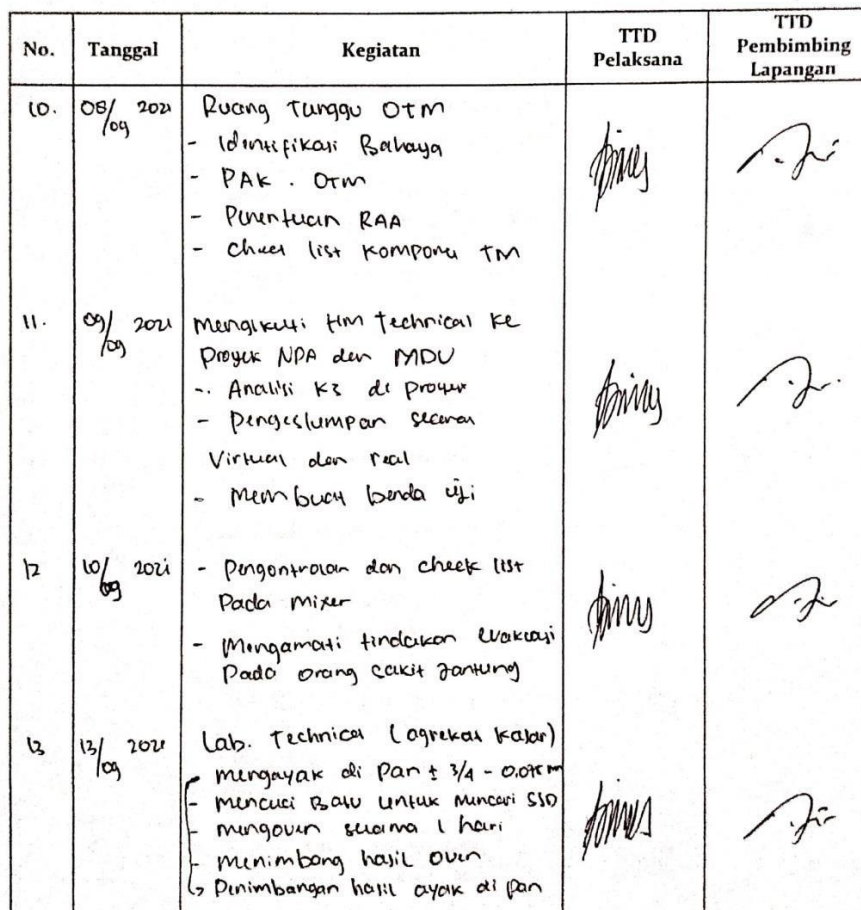 No. Tanggal Kegiatan TTD Pelaksana TTD Pembimbing Lapangan
10. 08/09 2021 Ruang Tunggu OTM
- Identifikasi Bahaya
- PAK. OTM
- Penentuan RAA
- Check list Komponen TM
11. 09/09 2021 Mengikuti HM Technical ke
Proyek NPA dan MDU
-. Analisi K3 di proyek
- Pengeslumpan secara
Virtual dan real
- Membuat benda uji
12 10/09 2021 - Pengontrolan dan check list
Pada mixer
- Mengamati tindakan evakuasi
Pada orang sakit Jantung
13 13/09 2021 Lab. Technical (agrekat kasar)
- mengayak di Pan ± 3/4 - 0.075 m
- mencuci Batu untuk mencari SSD
- mengoven selama 1 hari
- menimbang hasil oven
Penimbangan hasil ayak di pan